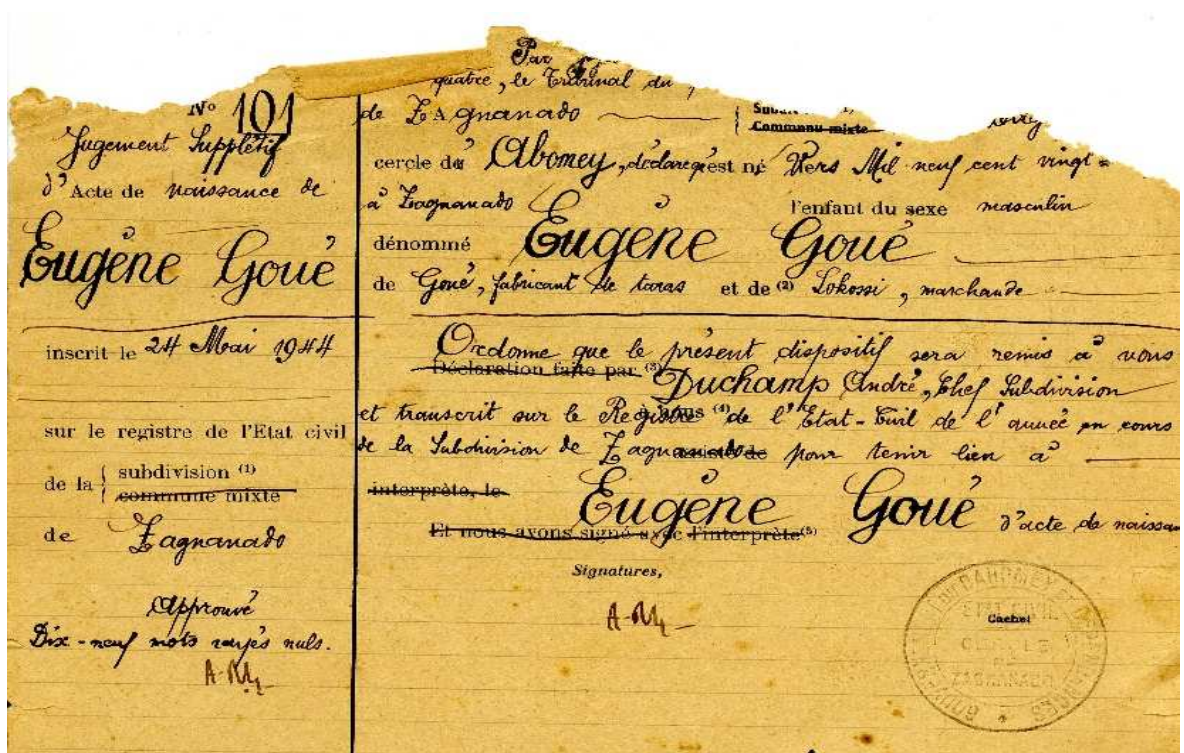 N° 101
Jugement Supplétif
d'Acte de naissance de
Eugène Goué
inscrit le 24 Mai 1944
sur le registre de l'Etat civil
de la { subdivision (1)
commune mixte
de Zagnanado
Approuvé
Dix-neuf mots rayés nuls.
Par
quatre, le Tribunal du
de ZAgnanado
Commune mixte
cercle de Abomey, déclare q'est né Vers Mil neuf cent vingt=
à Zagnanado l'enfant du sexe masculin
dénommé Eugène Goué
de Goué, fabricant de taras et de (2) Lokossi, marchande
Ordonne que le présent dispositif sera remis à vous
Déclaration faite par (3)
Duchamp André, Chef Subdivision
et transcrit sur le Registre à nous (4) de l'Etat-Civil de l'année en cours
de la Subdivision de Zagnanado pour tenir lieu à
interprète, le
Eugène Goué d'acte de naissan
Et nous avons signé avec l'interprète (5)
Signatures,
DU DAHOMEY ET DEPENDANCES
ETAT CIVIL
Cachet
CERCLE
DE
ZAGNANADO